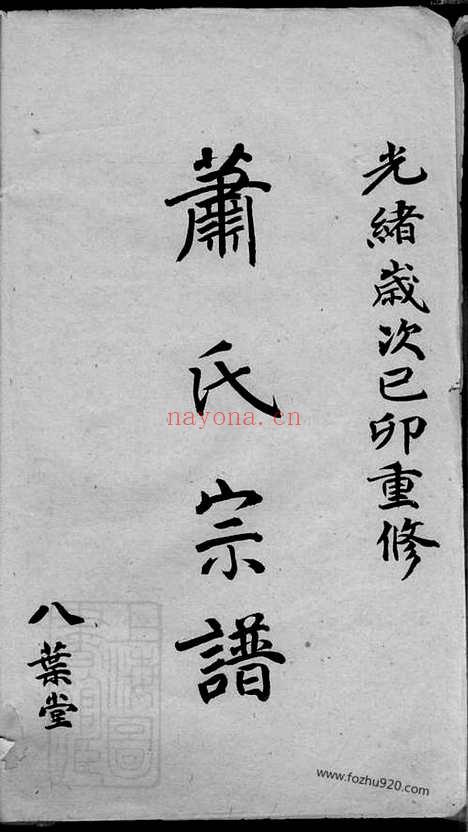 光緒歲次己卯重修
蕭氏宗譜
八葉堂
nayona.cn
www.fozhu920.com